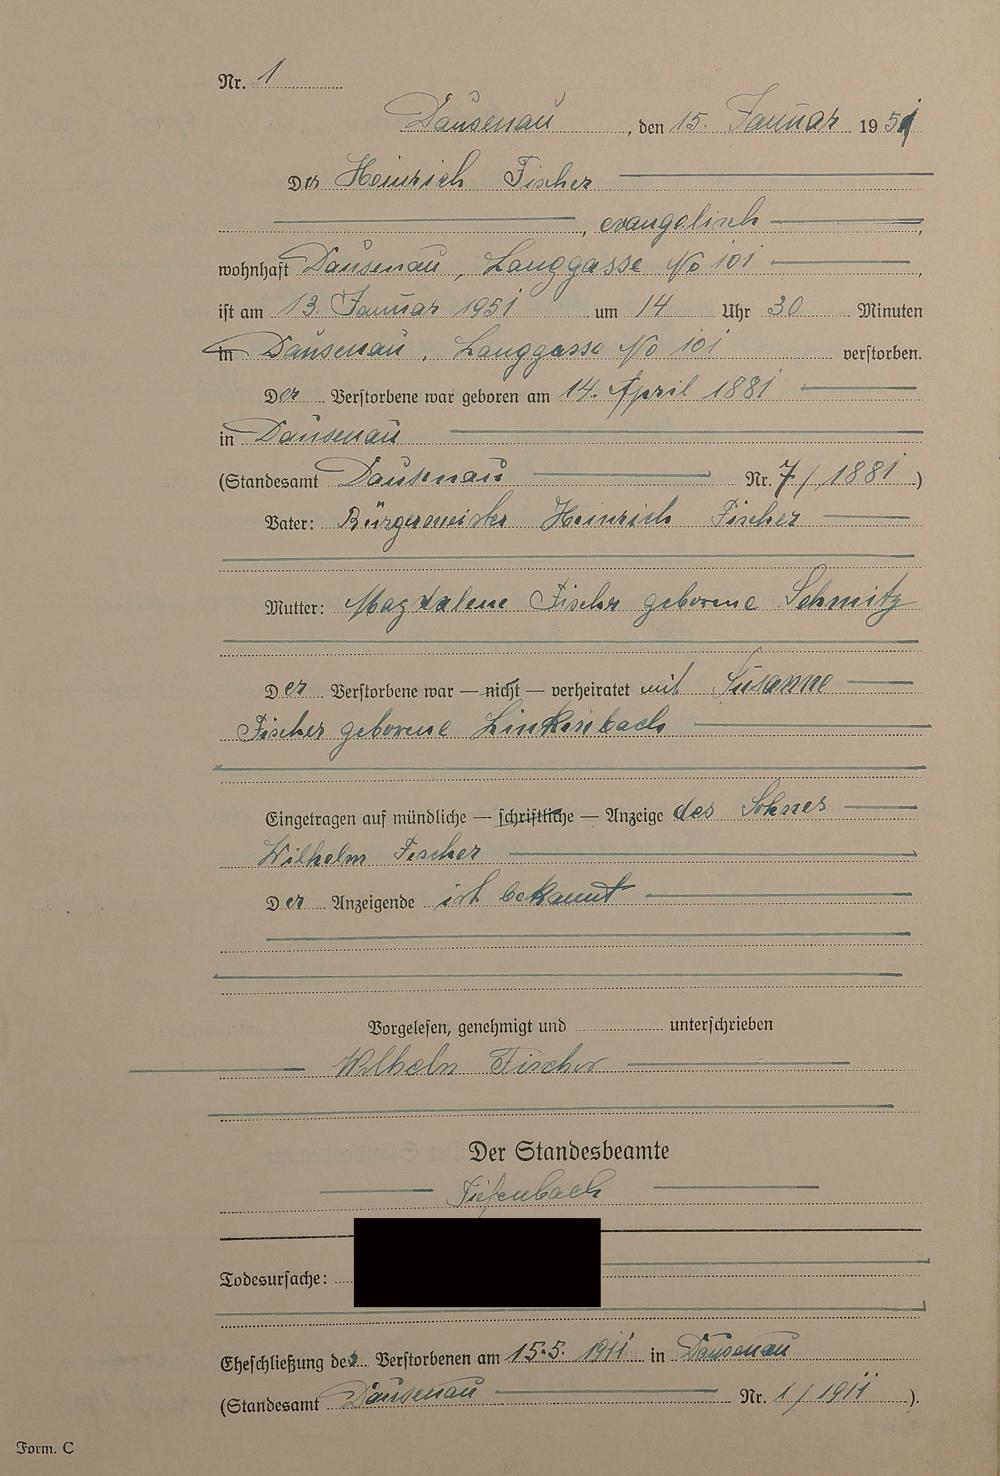 Nr. 1
Dausenau, den 15. Januar 1951
Der Heinrich Fischer
, evangelisch ,
wohnhaft Dausenau, Langgasse No 101 ,
ist am 13. Januar 1951 um 14 Uhr 30 Minuten
in Dausenau, Langgasse No 101 verstorben.
Der Verstorbene war geboren am 14. April 1881
in Dausenau
(Standesamt Dausenau Nr. 7/1881)
Vater: Bürgermeister Heinrich Fischer
Mutter: Magdalene Fischer geborene Schmitz
Der Verstorbene war — nicht — verheiratet mit Susanne
Fischer geborene Linkenbach
Eingetragen auf mündliche — schriftliche — Anzeige des Sohnes
Wilhelm Fischer
Der Anzeigende ist bekannt
Vorgelesen, genehmigt und unterschrieben
Wilhelm Fischer
Der Standesbeamte
Tiefenbach
Todesursache:
Eheschließung des Verstorbenen am 15.5. 1911 in Dausenau
(Standesamt Dausenau Nr. 1/1911).
Form. C